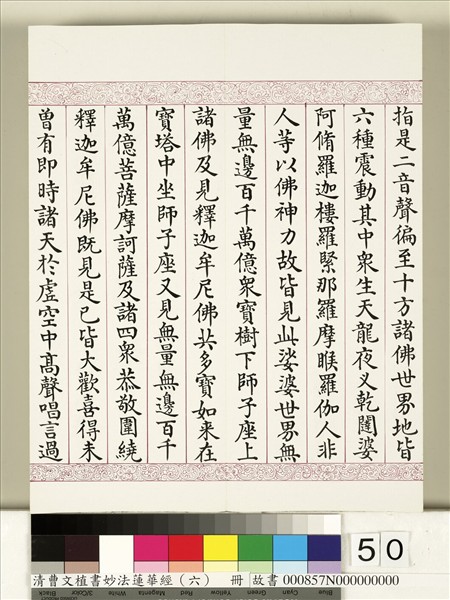 指是二音聲徧至十方諸佛世界地皆
六種震動其中眾生天龍夜叉乾闥婆
阿脩羅迦樓羅緊那羅摩睺羅伽人非
人等以佛神力故皆見此娑婆世界無
量無邊百千萬億眾寶樹下師子座上
諸佛及見釋迦牟尼佛共多寶如来在
寶塔中坐師子座又見無量無邊百千
萬億菩薩摩訶薩及諸四眾恭敬圍繞
釋迦牟尼佛既見是已皆大歡喜得未
曾有即時諸天於虛空中高聲唱言過
50
Black 3/Color White Magenta Red Yellow Green Cyan Blue
清曹文植書妙法蓮華經（六） 冊 故書 000857N000000000